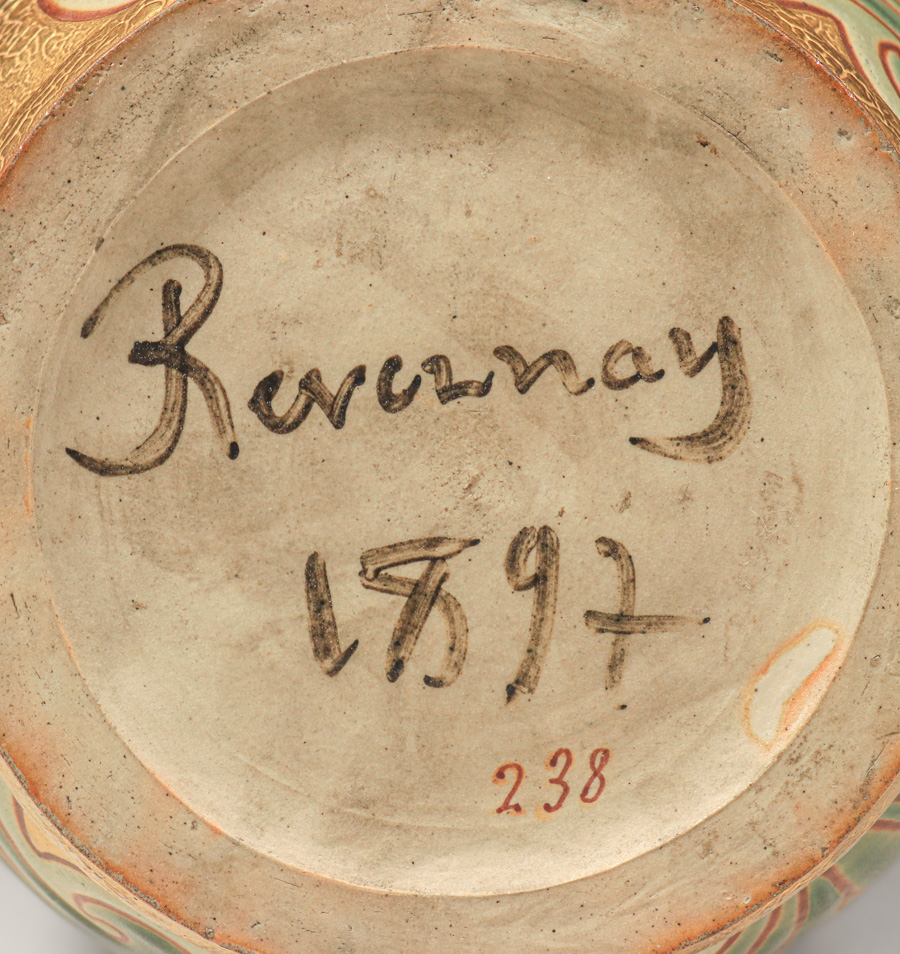 Revernay
1897
238